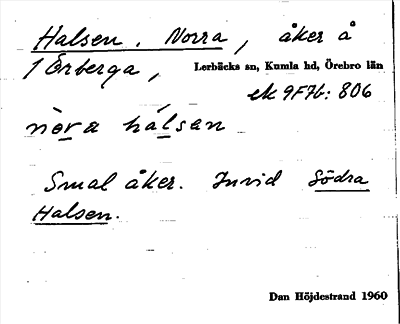 Halsen, Norra, åker å
1 Örberga, Lerbäcks sn, Kumla hd, Örebro län
ek 9F7b: 806
nòra hálsen
Smal åker. Invid Södra
Halsen.
Dan Höjdestrand 1960